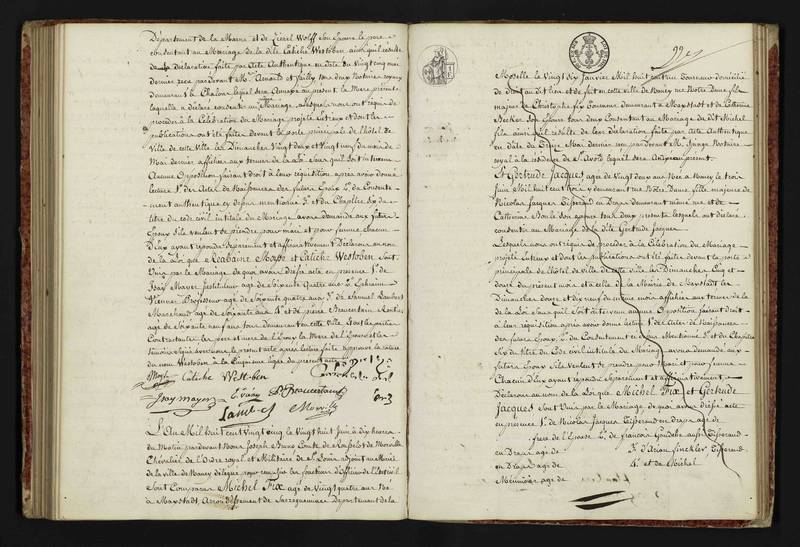 Département de la Marne et de Lierel Wolff son Epouse le pere
consentant au Mariage de la dite Catiche Westoben ainsi qu'il résulte
de la déclaration faite par Acte Authentique en date du vingt cinq mai
dernier reçu pardevant Me. Arnould et tous deux Notaires royaux
demeurant à Chalons lequel sera Annexé au présent la Mere présente
laquelle a déclaré consentir au Mariage, lesquels nous ont requis de
procéder à la Célébration du Mariage projeté entreux et dont les
publications ont été faites devant la porte principale de l'hôtel de
Ville de cette Ville les Dimanches vingt deux et vingt neuf du mois de
Mai dernier affichées aux termes de la Loi sans qu'il soit intervenu
Aucune Opposition faisant droit à leur réquisition après avoir donné
lecture 1°. des Actes de Naissances des futurs Epoux 2°. du Consente-
ment authentique cy dessus mentionné 3°. et du Chapitre six du
titre du code civil intitulé du Mariage avons demandé aux futurs
Epoux s'ils veulent se prendre pour mari et pour femme, chacun
D'Eux ayant répondu séparément et affirmativement Déclarons au nom
de la Loi que Mayer et Catiche Westoben sont
Unis par le Mariage de quoi avons dressé acte en présence 1°. de
Isay Mayer Instituteur agé de Soixante Quatre ans 2°. Ephraim
Vienner Professeur agé de Soixante quatre ans 3°. de Samuel Lambert
Marchand agé de soixante ans 4°. et de pierre Beaucertain Rentier
agé de Soixante neuf ans tous demeurant en cette ville Et ont les parties
Contractantes les pere et mere de l'Epoux la Mere de l'Epouse et les
témoins signé avec nous le présent acte après lecture faite approuvé la rature
du nom Westoben à la Cinquieme ligne du présent acte
Catiche Westoben
Isay mayer
Beaucertain
Lambert
Morville
L'An Mil huit cent vingt cinq le vingt huit Juin à dix heures
du Matin pardevant Nous Joseph Bruno Comte de Morville
Chevalier de l'Ordre royal et Militaire de St. Louis adjoint au Maire
de la ville de Nancy délégué pour remplir les fonctions d'officier de l'Etat civil
Sont Comparus Michel Fix agé de vingt quatre ans Né
à Maxstadt, Arrondissement de Sarreguemines Département de la
99
Moselle le vingt six Janvier Mil huit cent un Tisserand domicilié
de droit au dit lieu et de fait en cette ville de Nancy rue Notre Dame fils
majeur de Christophe Fix demeurant à Maxstadt et de Catherine
Becker son Epouse tous deux Consentant au Mariage du dit Michel
Fix ainsi qu'il résulte de leur déclaration faite par Acte Authentique
en date du Treize Mai dernier reçu pardevant Me. Notaire
royal à la résidence de St. Avold lequel sera Annexé au présent.
Et Gertrude Jacques agée de vingt deux ans Née à Nancy le trois
Juin Mil huit cent trois y demeurant rue Notre Dame fille majeure de
Nicolas Jacques Tisserand en Draps demeurant même rue et de
Catherine son épouse tous deux présents lesquels ont déclaré
consentir au Mariage de la dite Gertrude Jacques
Lesquels nous ont requis de procéder à la Célébration du Mariage
projeté Entreux et dont les publications ont été faites devant la porte
principale de l'hôtel de ville de cette ville les Dimanches Cinq et
douze du présent mois et à celle de la Mairie de Maxstadt les
Dimanches douze et dix neuf du même mois affichées aux termes de la
de la Loi sans qu'il soit intervenu aucune Opposition faisant droit
à leur réquisition après avoir donné lecture 1°. des Actes de Naissances
des futurs Epoux 2°. du Consentement cy dessus Mentionné 3°. et du Chapitre
Six du titre du Code civil intitulé du Mariage avons demandé aux
futurs Epoux s'ils veulent se prendre pour Mari et pour femme
Chacun d'Eux ayant répondu Séparément et affirmativement
Déclarons au nom de la Loi que Michel Fix et Gertrude
Jacques sont Unis par le Mariage de quoi avons dressé acte
en présence 1°. de Nicolas Jacques Tisserand en draps agé de
frere de l'Epouse 2°. de Francois aussi Tisserand
en Draps agé de 3°. d'Adrien Finckler Tisserand
en Draps agé de 4°. et de Michel
Menuisier agé de